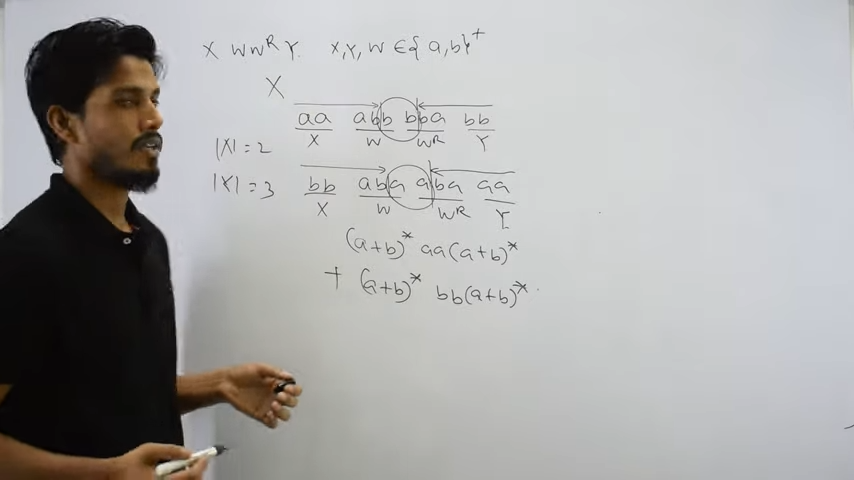 X WW^R Y. X,Y,W ∈ {a,b}^+
X
aa abb bba bb
X W W^R Y
|X| = 2
bb aba aba aa
|Y| = 3
X W W^R Y
(a+b)* aa(a+b)*
+ (a+b)* bb(a+b)*.